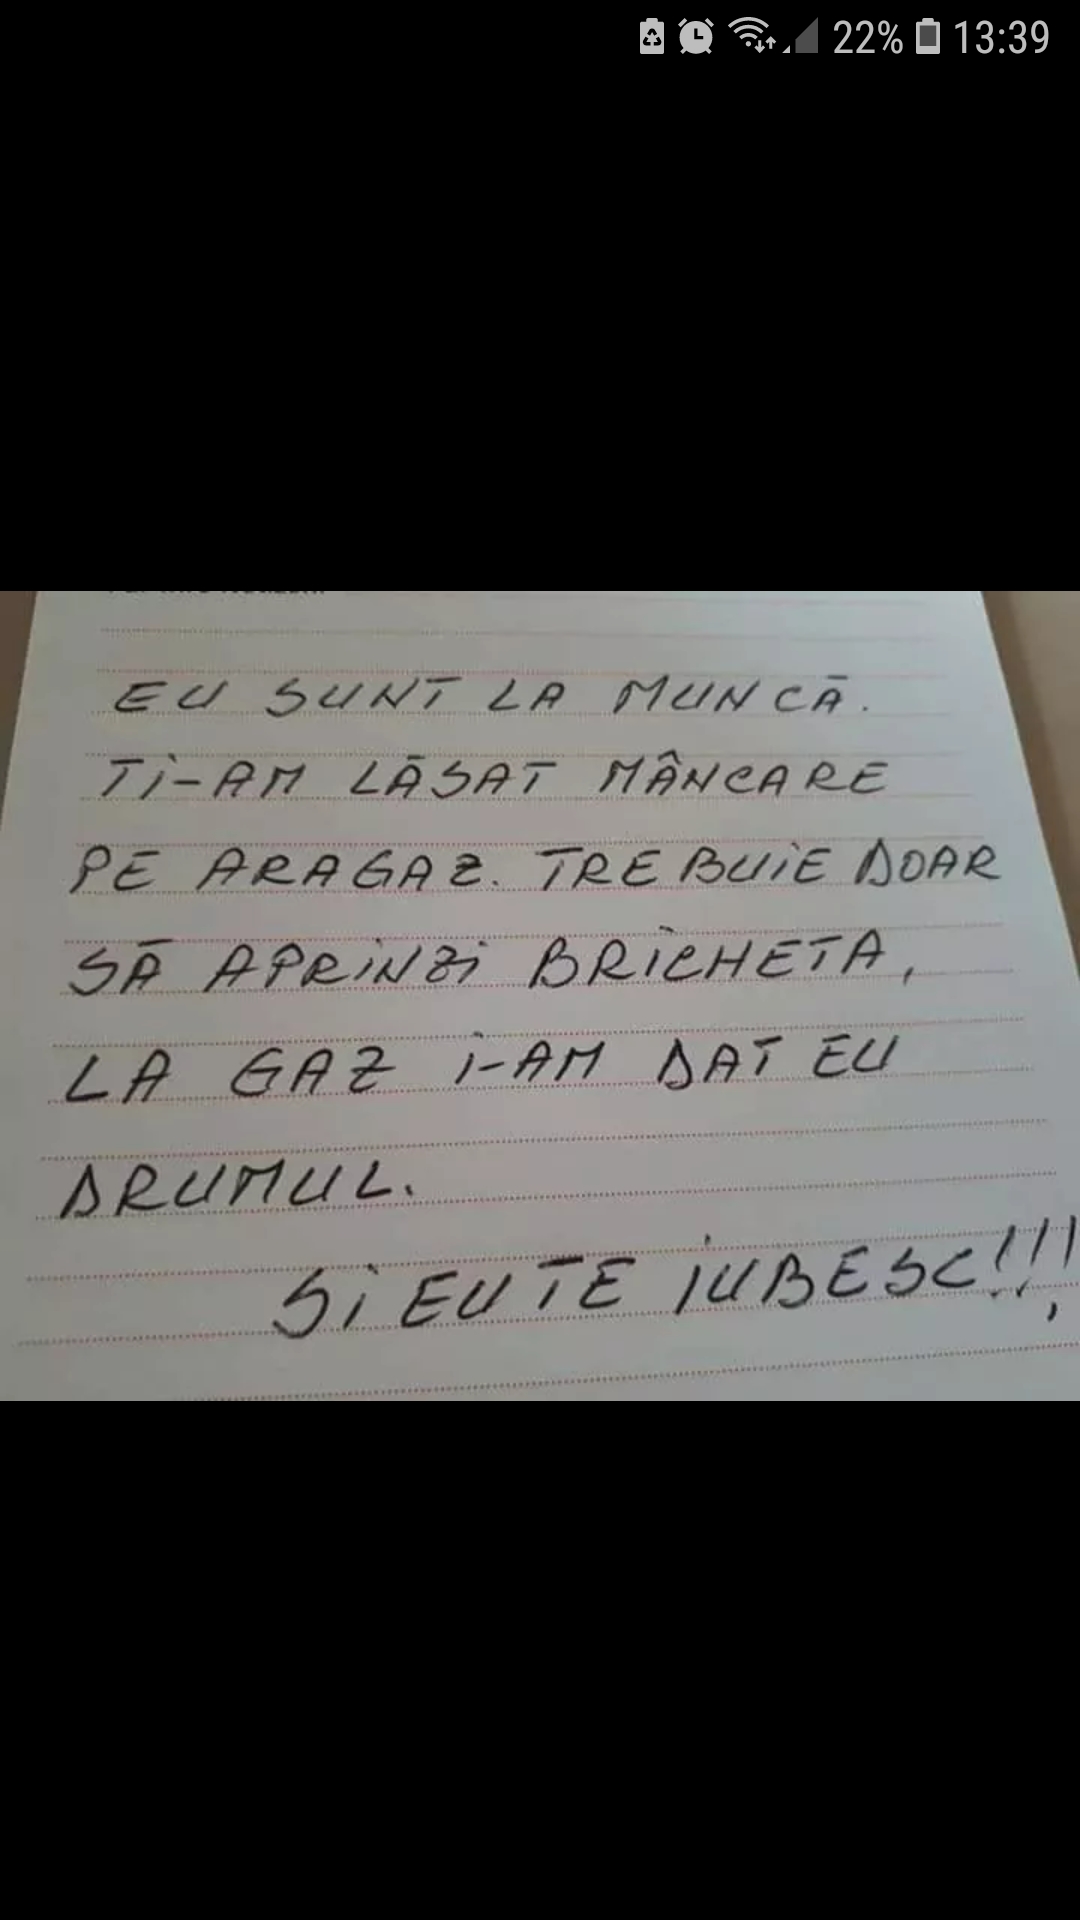 22% 13:39
EU SUNT LA MUNCĂ.
TI-AM LĂSAT MÂNCARE
PE ARAGAZ. TREBUIE DOAR
SĂ APRINZI BRICHETA,
LA GAZ I-AM DAT EU
DRUMUL.
SI EU TE IUBESC!!!